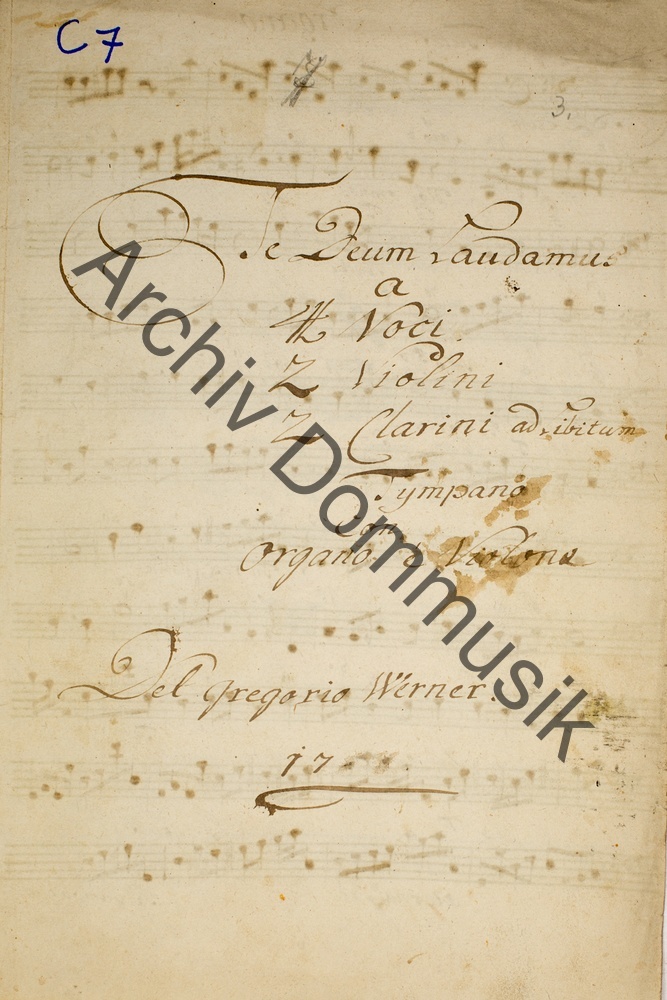 C7
7
3.
Te Deum Laudamus
a
4 Voci.
2 Violini
2 Clarini ad Libitum
Tympano
Con
Organo è Violone
Del Gregorio Werner.
17
Archiv Dommusik